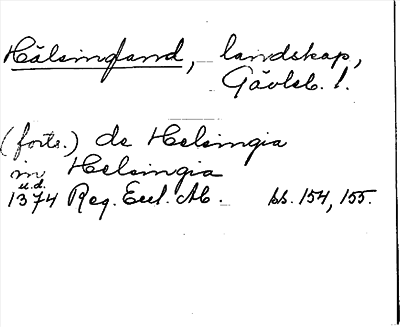 Hälsingland, landskap,
Gävleb. l.
(forts.) de Helsingia
m Helsingia
u.d.
1374 Reg. Eccl. Ab. bl. 154, 155.